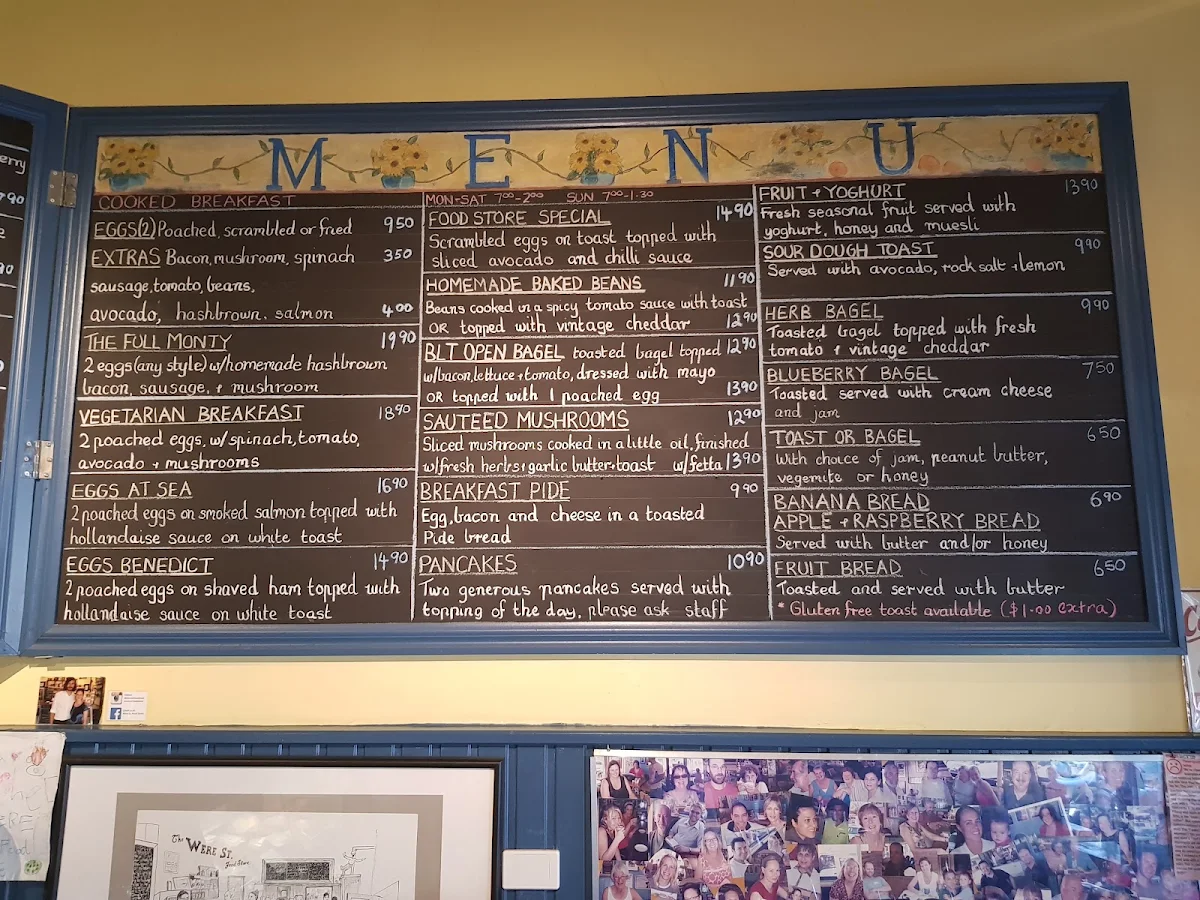 MENU
COOKED BREAKFAST
EGGS(2) Poached, scrambled or fried 9 50
EXTRAS Bacon, mushroom, spinach 3 50
sausage, tomato, beans,
avocado, hashbrown, salmon 4 00
THE FULL MONTY 19 90
2 eggs (any style) w/homemade hashbrown
bacon, sausage, + mushroom
VEGETARIAN BREAKFAST 18 90
2 poached eggs, w/spinach, tomato,
avocado + mushrooms
EGGS AT SEA 16 90
2 poached eggs on smoked salmon topped with
hollandaise sauce on white toast
EGGS BENEDICT 14 90
2 poached eggs on shaved ham topped with
hollandaise sauce on white toast
MON-SAT 7 00-2 00 SUN 7 00-1.30
FOOD STORE SPECIAL 14 90
Scrambled eggs on toast topped with
sliced avocado and chilli sauce
HOMEMADE BAKED BEANS 11 90
Beans cooked in a spicy tomato sauce with toast
OR topped with vintage cheddar 12 90
BLT OPEN BAGEL toasted bagel topped 12 90
w/bacon, lettuce + tomato, dressed with mayo
OR topped with 1 poached egg 13 90
SAUTEED MUSHROOMS 12 90
Sliced mushrooms cooked in a little oil, finished
w/fresh herbs + garlic butter + toast w/fetta 13 90
BREAKFAST PIDE 9 90
Egg, bacon and cheese in a toasted
Pide bread
PANCAKES 10 90
Two generous pancakes served with
topping of the day, please ask staff
FRUIT + YOGHURT 13 90
Fresh seasonal fruit served with
yoghurt, honey and muesli
SOUR DOUGH TOAST 9 90
Served with avocado, rock salt + lemon
HERB BAGEL 9 90
Toasted bagel topped with fresh
tomato + vintage cheddar
BLUEBERRY BAGEL 7 50
Toasted served with cream cheese
and jam
TOAST OR BAGEL 6 50
With choice of jam, peanut butter,
vegemite or honey
BANANA BREAD 6 90
APPLE + RASPBERRY BREAD
Served with butter and/or honey
FRUIT BREAD 6 50
Toasted and served with butter
* Gluten free toast available ($1.00 extra)
The WERE ST.
Food Store